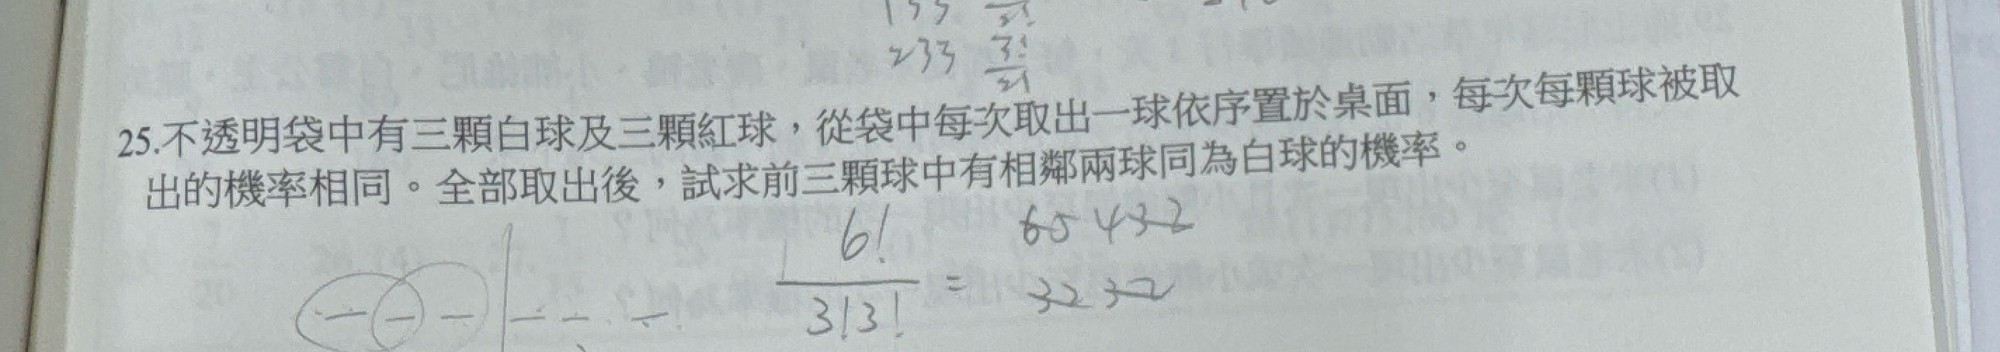 233 3!/2!
25.不透明袋中有三顆白球及三顆紅球，從袋中每次取出一球依序置於桌面，每次每顆球被取
出的機率相同。全部取出後，試求前三顆球中有相鄰兩球同為白球的機率。
6!/3!3! = 65432
3232